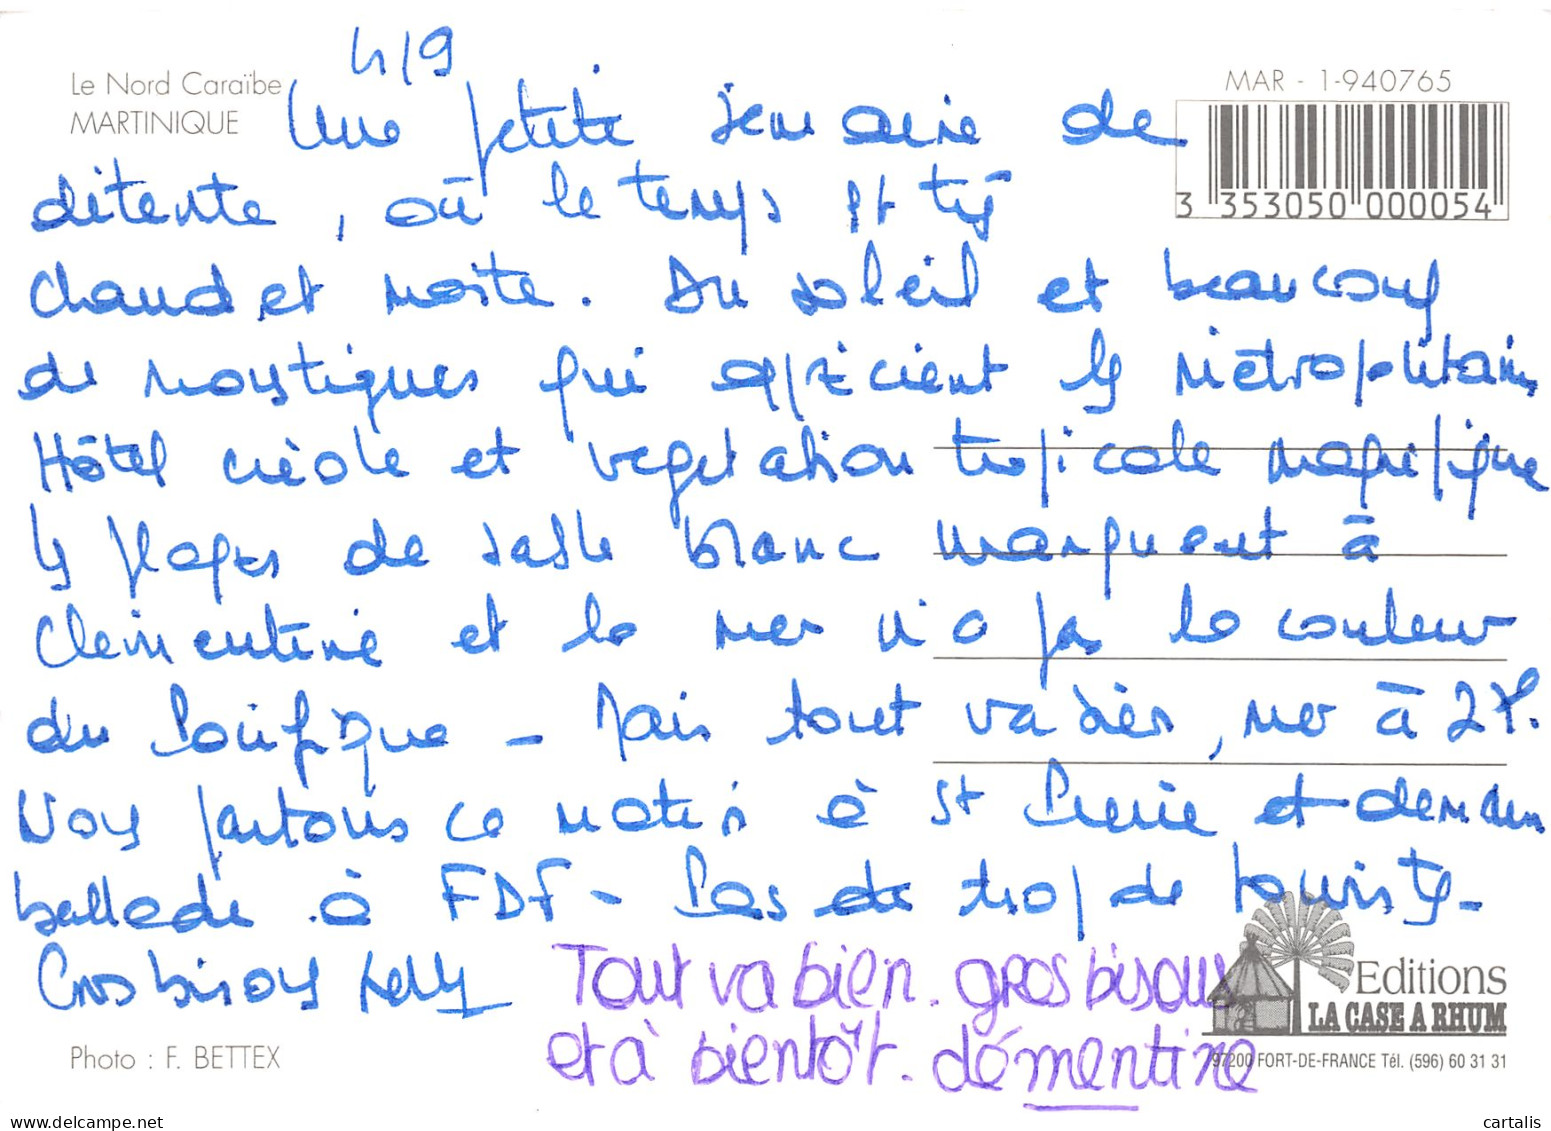 4/9
Le Nord Caraïbe
MARTINIQUE
MAR - 1-940765
3 353050 000054
Une petite semaine de
détente, où le temps est très
chaud et moite. Du soleil et beaucoup
de moustiques qui apprécient les métropolitains
Hôtel créole et vegetation tropicale magnifique
les plages de sable blanc manquent à
Clementine et la mer n'a pas la couleur
du Pacifique - Mais tout va bien, mer à 27°.
Nous partons ce matin à St Pierre et demain
ballade à FDF - Pas de trop de touristes -
Gros bisous
Tout va bien. gros bisous
et à bientôt. clémentine
Editions
LA CASE A RHUM
97200 FORT-DE-FRANCE Tél. (596) 60 31 31
Photo : F. BETTEX
www.delcampe.net
cartalis